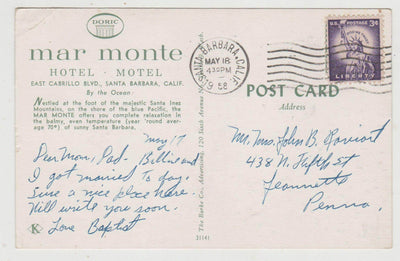 DORIC
mar monte
HOTEL · MOTEL
EAST CABRILLO BLVD., SANTA BARBARA, CALIF.
By the Ocean
Nestled at the foot of the majestic Santa Ines
Mountains, on the shore of the blue Pacific, the
MAR MONTE offers you complete relaxation in
the balmy, even temperature (year 'round aver-
age 70°) of sunny Santa Barbara.
May 17
Dear Mom, Dad - Billie and
I got married to day.
Sure a nice place here.
Will write you soon.
Love Baptist
K
31141
SANTA BARBARA, CALIF.
MAY 18
PM
1958
U.S. POSTAGE 3¢
LIBERTY
POST CARD
Address
Mr. Mrs. John B.
438 N. Fifth St
Jeannette
Penna.